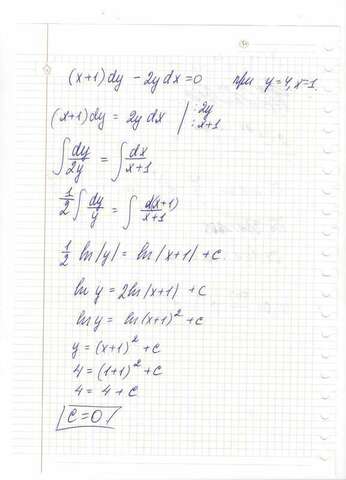 (x+1)dy - 2y dx = 0 при y=4, x=1.
(x+1)dy = 2y dx | :2y :x+1
∫ dy/2y = ∫ dx/x+1
1/2 ∫ dy/y = ∫ d(x+1)/x+1
1/2 ln|y| = ln|x+1| + c
ln y = 2ln|x+1| + c
ln y = ln(x+1)² + c
y = (x+1)² + c
4 = (1+1)² + c
4 = 4 + c
c=0